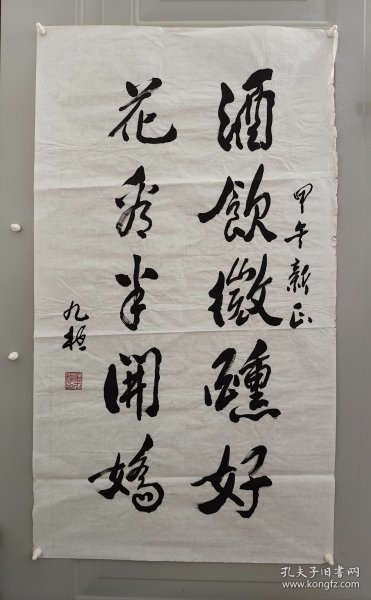 甲午新正
酒飲微醺好
花看半開嬌
九植
孔夫子旧书网
www.kongfz.com